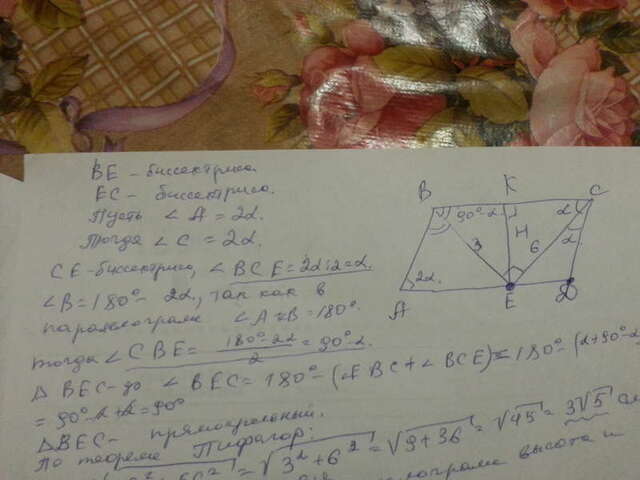 BE - биссектриса.
EC - биссектриса.
Пусть ∠ A = 2α.
Тогда ∠ C = 2α.
CE - биссектриса, ∠ BCE = 2α:2=α.
∠B = 180° - 2α, так как в
паралелограме ∠A+B=180°.
тогда ∠ CBE = 180°-2α/2 = 90°-α.
Δ BEC- ∠ BEC = 180° - (∠EBC + ∠BCE) = 180° - (α+90°-α)
= 90°-α+α = 90°
Δ BEC - прямоугольный.
По теореме Пифагор:
= √3²+6² = √9+36 = √45 = 3√5 см
высота и
B K C
90°-α α
H α
3 6
2α
A E D